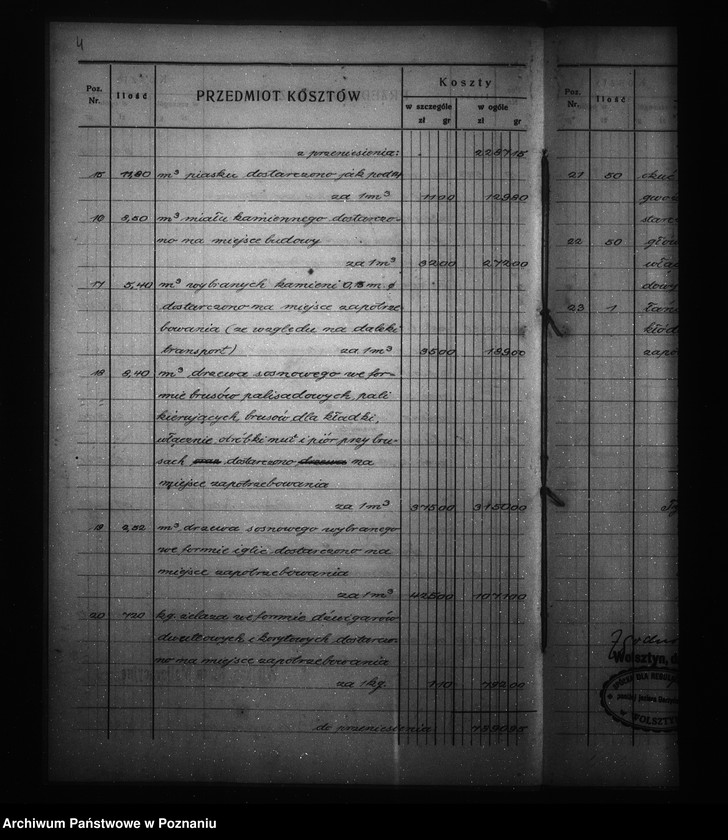 4
Poz. Nr.
Ilość
PRZEDMIOT KOSZTÓW
Koszty
w szczególe
zł gr
w ogóle
zł gr
z przeniesienia:
15 11,80 m³ piasku dostarczono jak pod
za 1 m³ 11 00 129 80
m³ miału kamiennego dostarczo-
no na miejsce budowy
za 1 m³ 32 00 272 00
17 5,40 m³ wybranych kamieni 0,15 m ø
dostarczono na miejsce zapotrze
bowania (ze względu na daleki
transport) za 1 m³ 35 00 189 00
18 8,40 m³ drzewa sosnowego we for-
mie brusów palisadowych, pali
kierujących, brusów dla kładki,
włącznie obróbki nut i piór przy bru-
sach dostarczono na
miejsce zapotrzebowania
za 1 m³ 375 00 3150 00
19 2,52 m³ drzewa sosnowego wybranego
we formie iglic dostarczono na
miejsce zapotrzebowania
za 1 m³ 425 00 1071 00
20 720 kg żelaza we formie dźwigarów
dwuteowych i korytowych dostarczo-
no na miejsce zapotrzebowania
za 1 kg. 1 10 792 00
do przeniesienia
Poz. Nr.
Ilość
21 50
22 50
23 1
Wolsztyn, d
WOLSZTYN
Archiwum Państwowe w Poznaniu